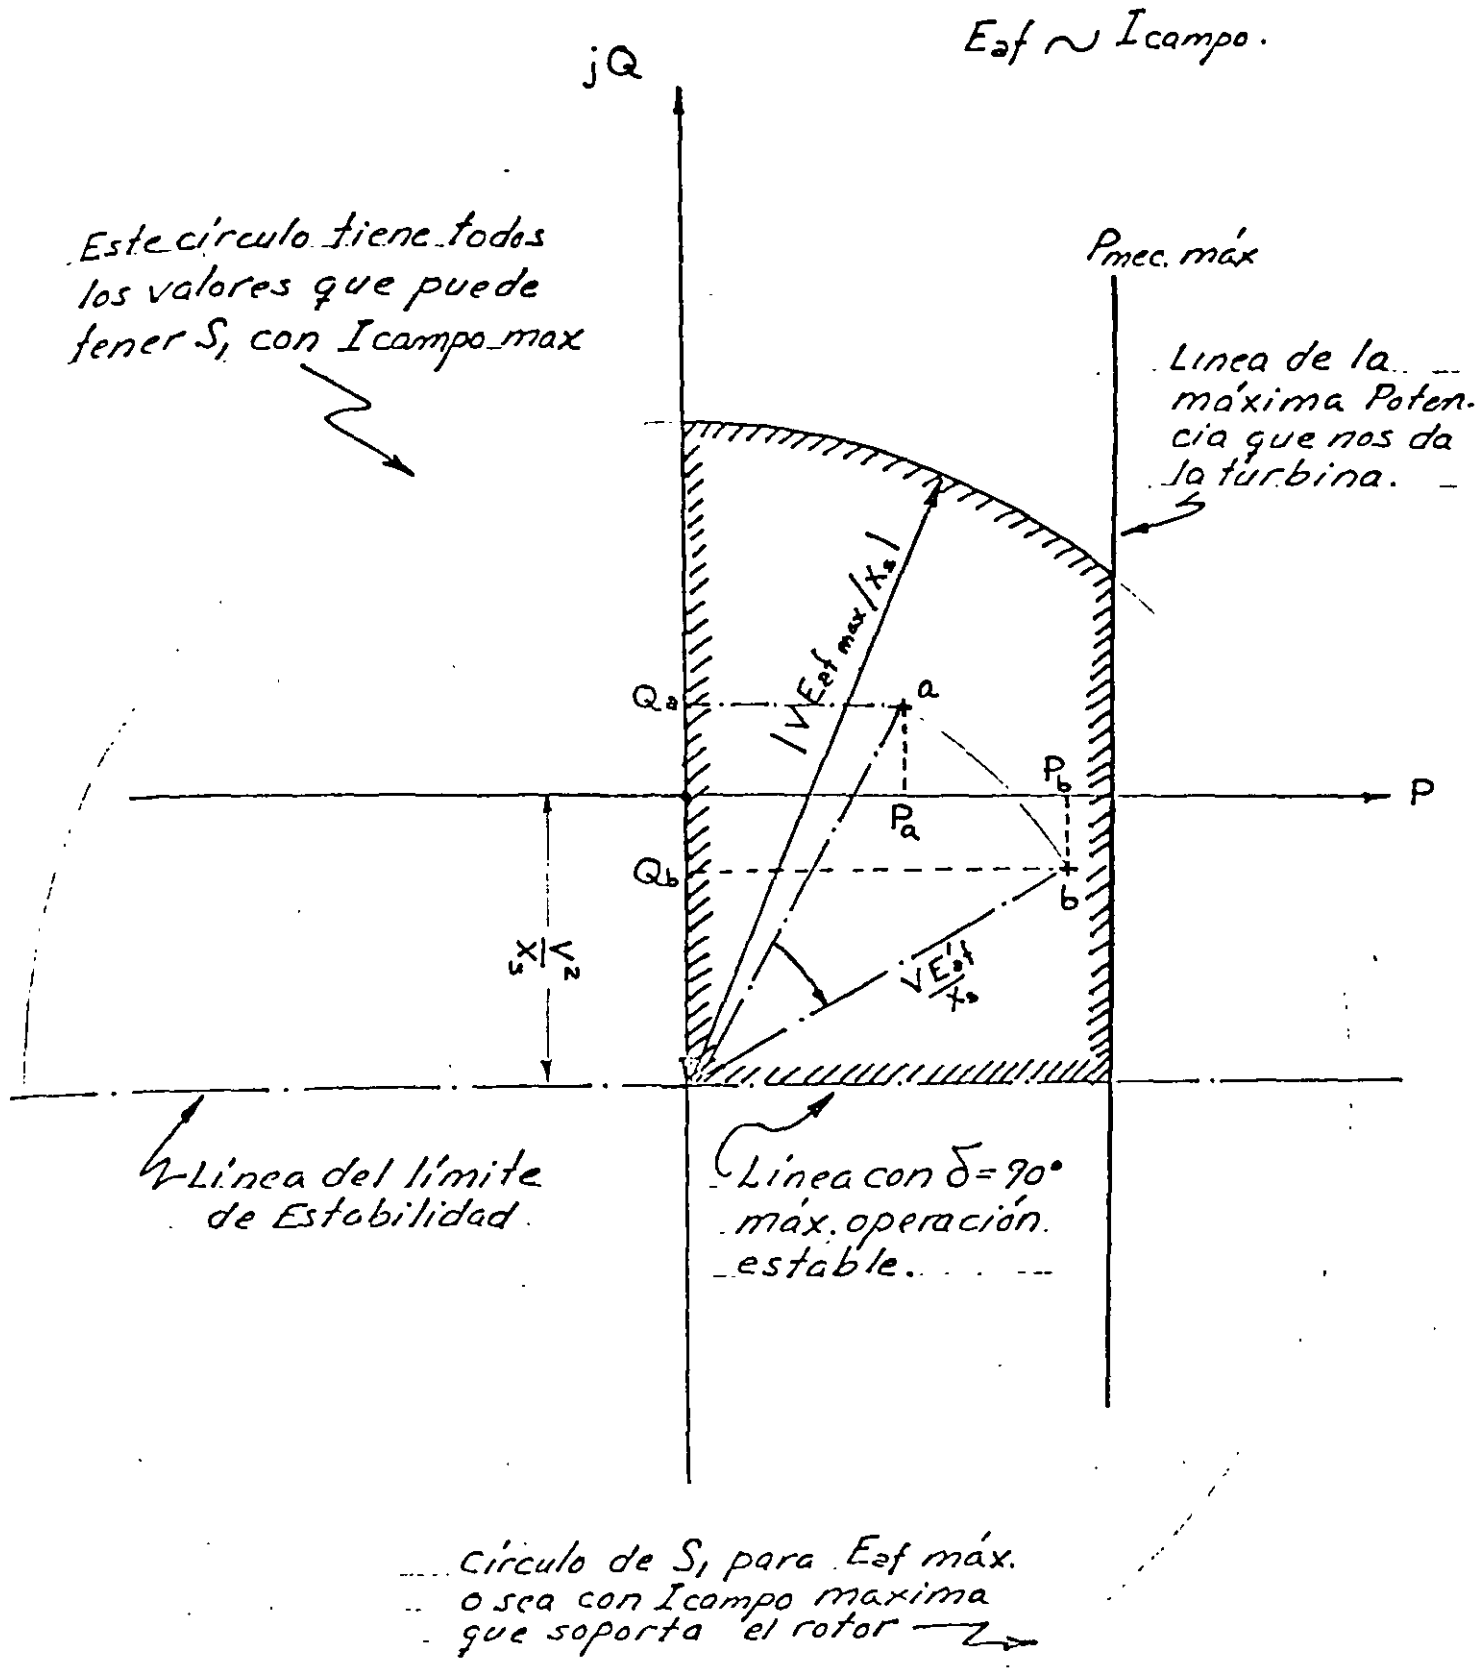 Eaf ∼ Icampo.
jQ
Este círculo tiene todos
los valores que puede
tener S, con Icampo max
Pmec. máx
Línea de la
máxima Poten-
cia que nos da
la turbina.
|V Eaf max/Xs|
Qa
a
Pb
P
Pa
Qb
b
V²/Xs
VE'af/Xs
Línea del límite
de Estabilidad.
Línea con δ=90°
máx. operación.
estable.
Círculo de S, para Eaf máx.
o sea con Icampo maxima
que soporta el rotor